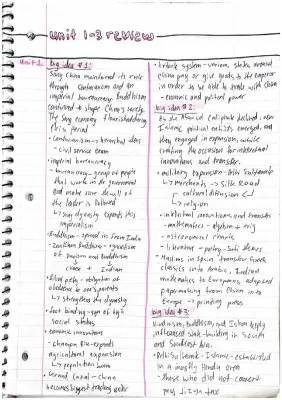 unit 1-3 review
Unit 1
big idea #1:
Song China maintained its rule
through Confucianism and an
imperial bureaucracy. Buddhism
continued to shape China's society.
The Song economy flourished during
this period
• Confucianism - hierarchical ideas
- Civil service exam
• imperial bureaucracy
- bureaucracy - group of people
that work in the government
and make sure the will of
the leader is followed
↳ Song dynasty expands this
imperialism
• Buddhism - spread in from India
- Zen/Chan Buddhism - syncretism
of Daoism and Buddhism
Chinese + Indian
• filial piety - obligation of
obedience to one's parents
↳ strengthens the dynasty
• foot binding - sign of high
social status
• economic innovations
- Champa Rice - expands
agricultural expansion
↳ population boom
• Grand Canal - China
becomes biggest trading order
• tribute system - various states around
china pay or give goods to the emperor
in order to be able to trade with china
- economic and political power
big idea #2:
As the Abbasid Caliphate declined, new
Islamic political entities emerged, and
they engaged in expansion, while
crafting the occasion for intellectual
innovations and transfers.
• military expansion - Delhi Sultanate
↳ merchants → Silk Road
cultural diffusion
↳ religion
• intellectual innovations and transfers
- mathematics - algebra + trig
- astronomical charts
- literature + poetry - Sufi themes
• Muslims in Spain transfer Greek
classics into Arabic, Indian
mathematics to Europeans, adapted
papermaking from China into
Europe → printing press
big idea #3:
Hinduism, Buddhism, and Islam deeply
influenced state-building in South
and Southeast Asia.
• Delhi Sultanate - Islamic - established
in a mostly Hindu area
- those who did not convert
pay jizya tax